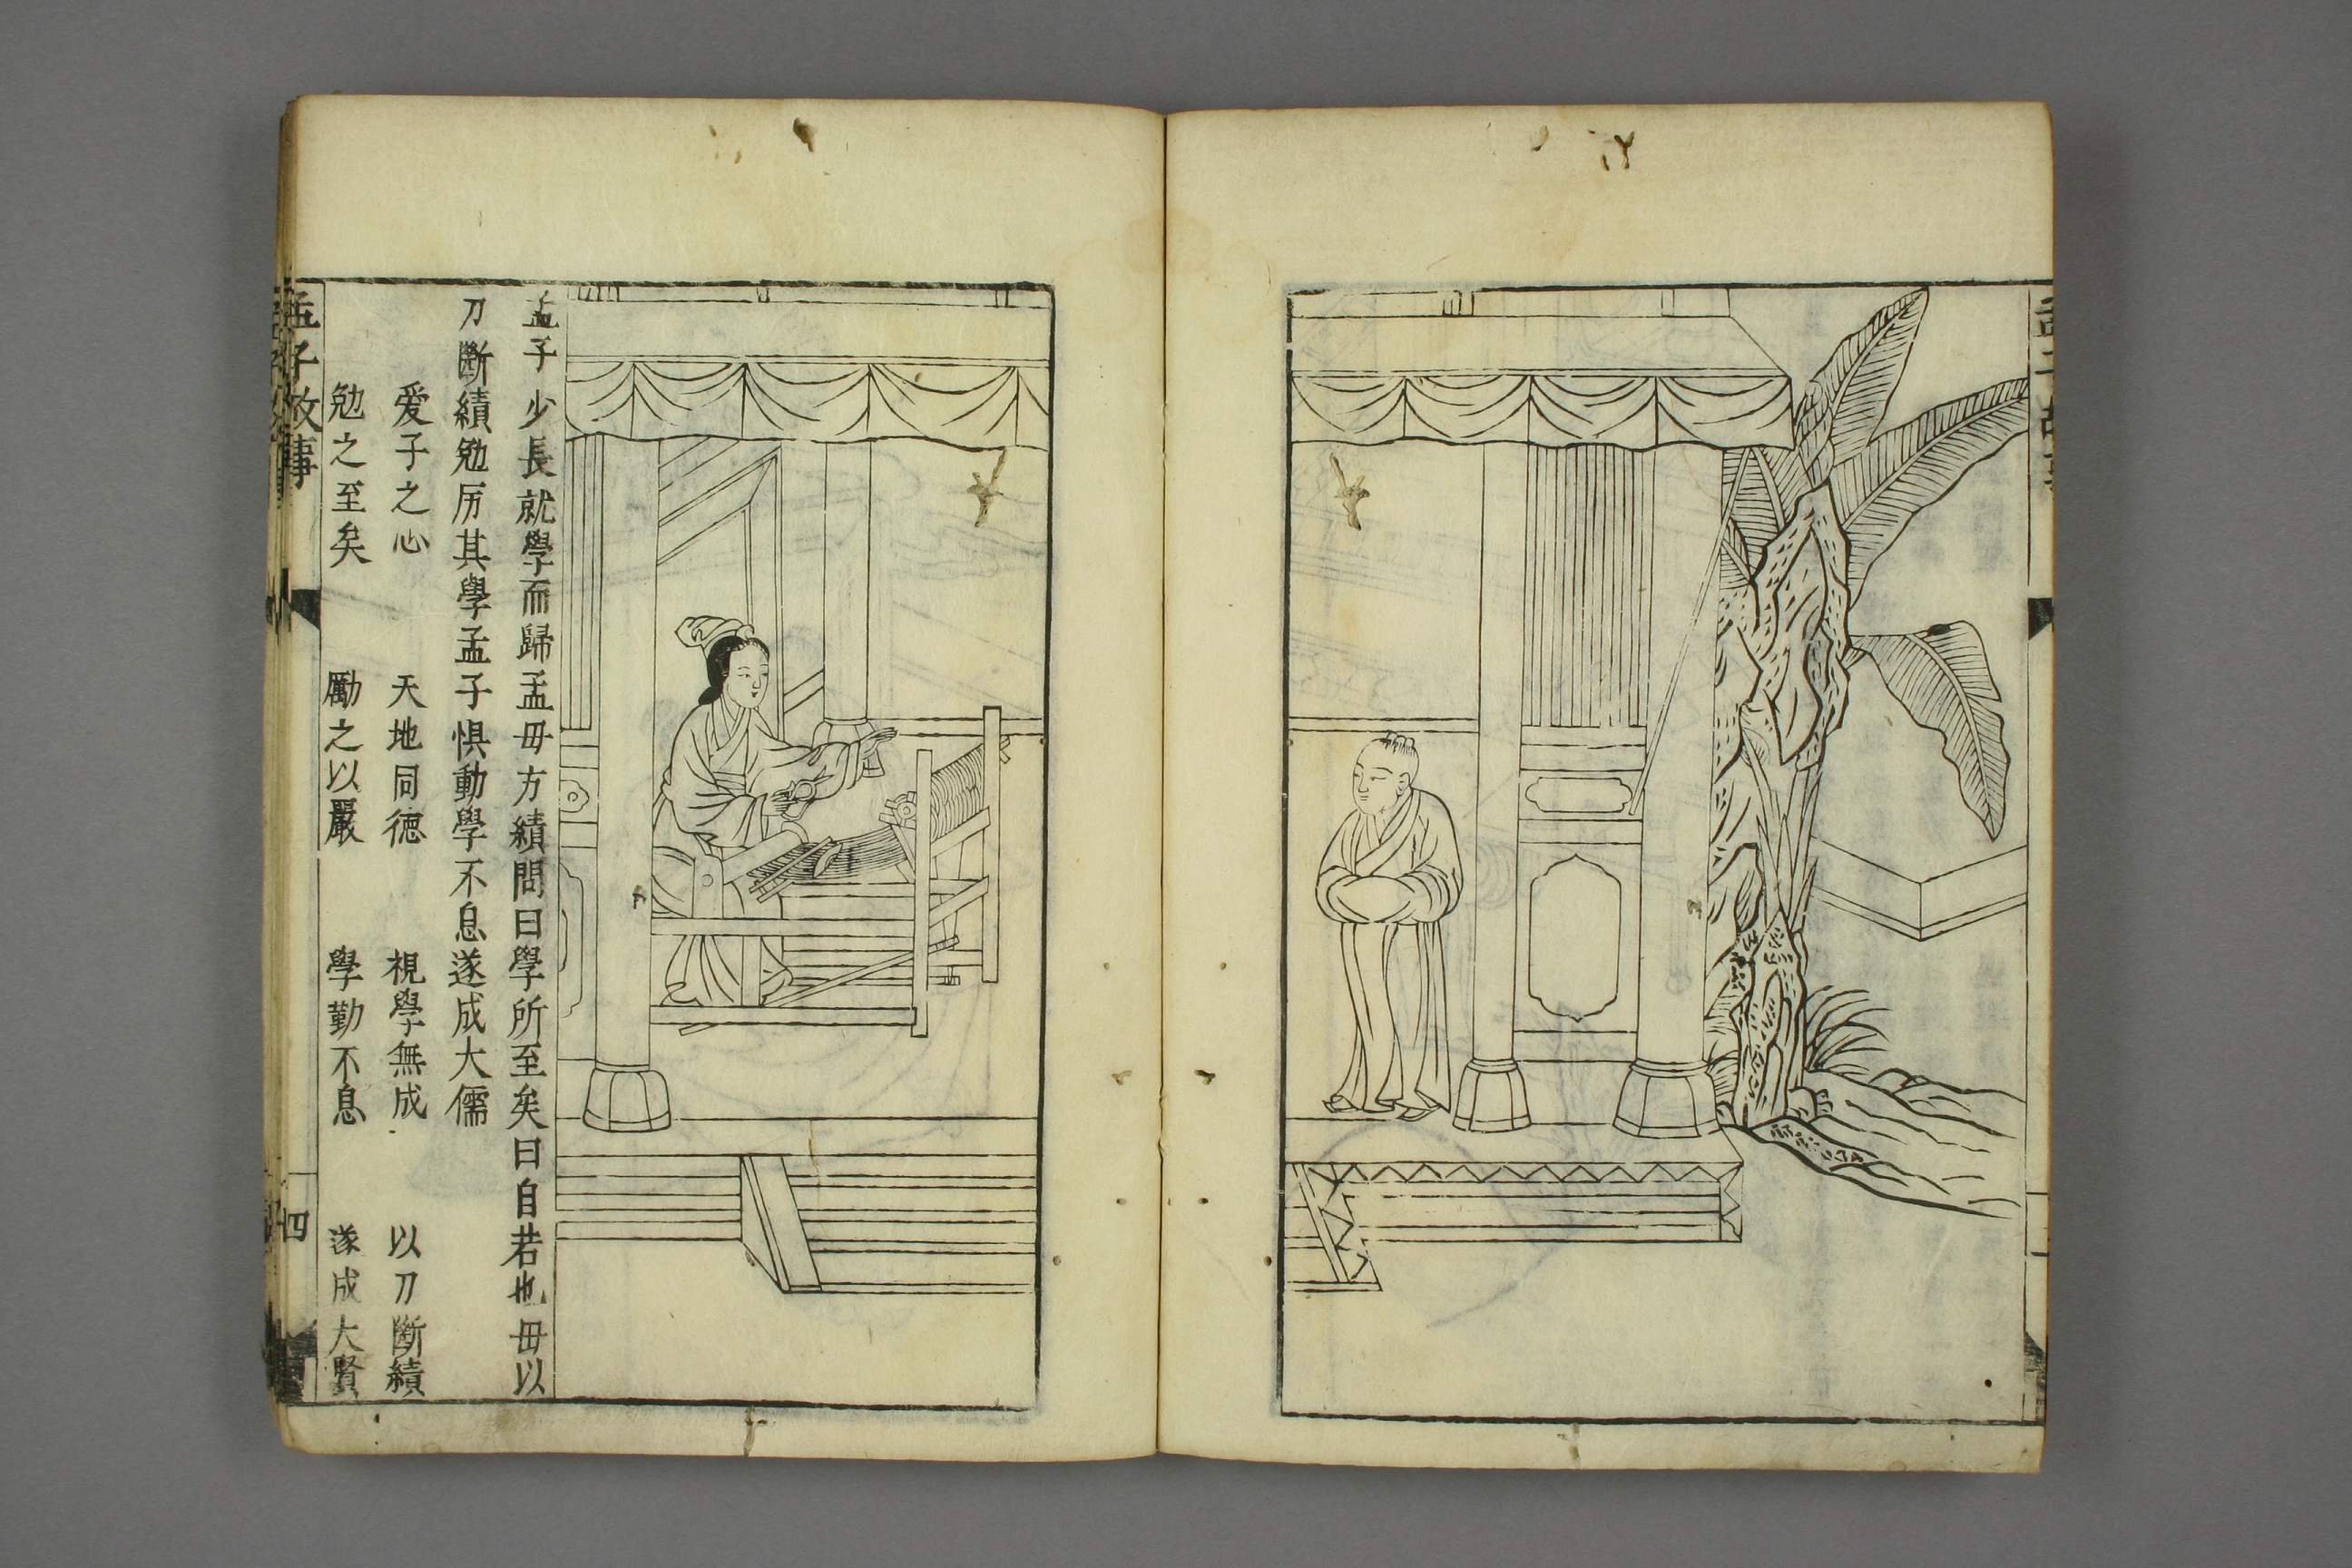 孟子少長就學而歸孟毋方績問曰學所至矣曰自若也毋以
刀斷績勉厉其學孟子惧動學不息遂成大儒
爱子之心 天地同徳 視學無成 以刀斷績
勉之至矣 勵之以嚴 學勤不息 遂成大賢
孟子故事 四